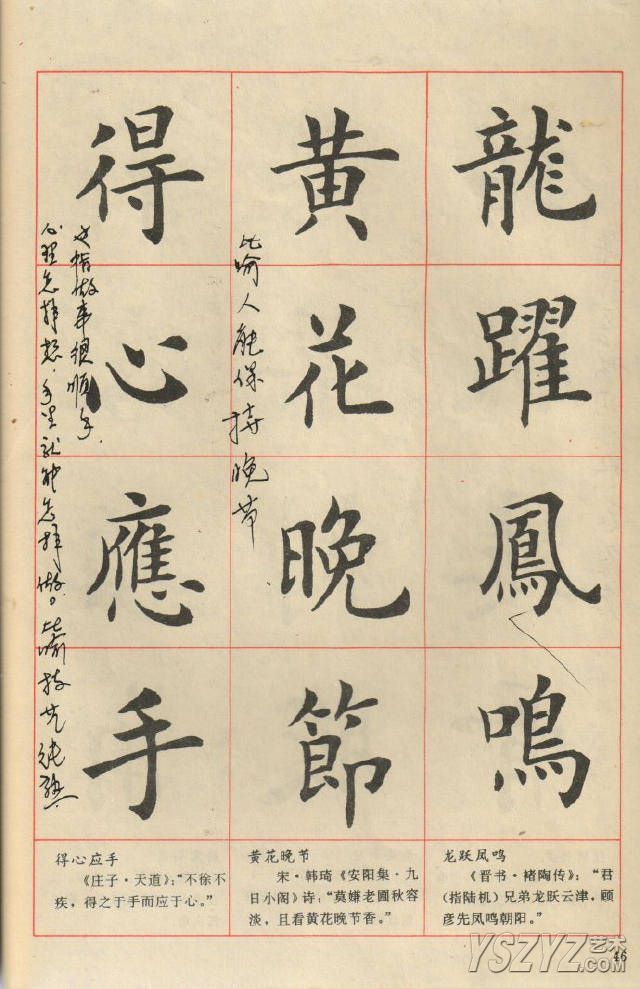 龍躍鳳鳴
黄花晚節
比喻人能保持晚节
得心應手
心理怎样想，手里就能怎样做。比喻技艺纯熟
也指做事很顺手.
龙跃凤鸣
《晋书·褚陶传》：“君
（指陆机）兄弟龙跃云津，顾
彦先凤鸣朝阳。”
黄花晚节
宋·韩琦《安阳集·九
日小阁》诗：“莫嫌老圃秋容
淡，且看黄花晚节香。”
得心应手
《庄子·天道》：“不徐不
疾，得之于手而应于心。”
46
YSZYZ艺术
.COM